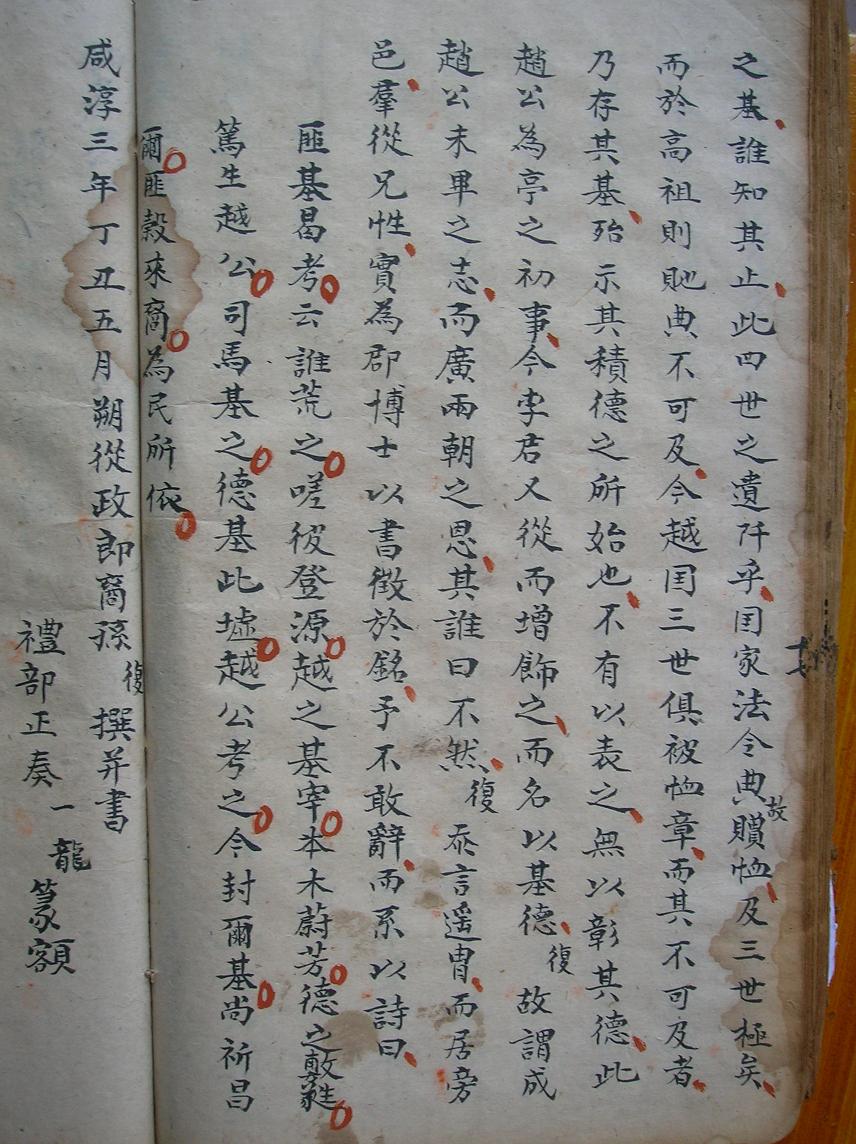 之基誰知其止此四世之遺阡乎囯家法令典故贈恤及三世極矣
而於高祖則貤典不可及今越囯三世俱被恤章而其不可及者
乃存其基殆示其積德之所始也不有以表之無以彰其德此
趙公為亭之初事今李君又從而增飾之而名以基德復故謂成
趙公未畢之志而廣兩朝之恩其誰曰不然復忝言遥胄而居旁
邑羣從兄性實為郡博士以書徵於銘予不敢辭而系以詩曰
匪基曷考云誰荒之嗟彼登源越之基宰本木蔚芳德之
篤生越公司馬基之德基此墟越公考之今封爾基尚祈昌
爾匪穀來裔為民所依
咸淳三年丁丑五月朔從政郎裔孫復撰并書
禮部正奏一龍篆額